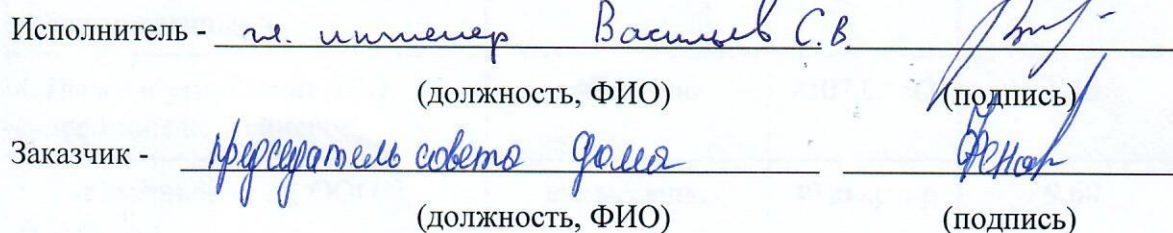 Исполнитель - гл. инженер Васильев С.В.
(должность, ФИО) (подпись)
Заказчик - председатель совета дома
(должность, ФИО) (подпись)